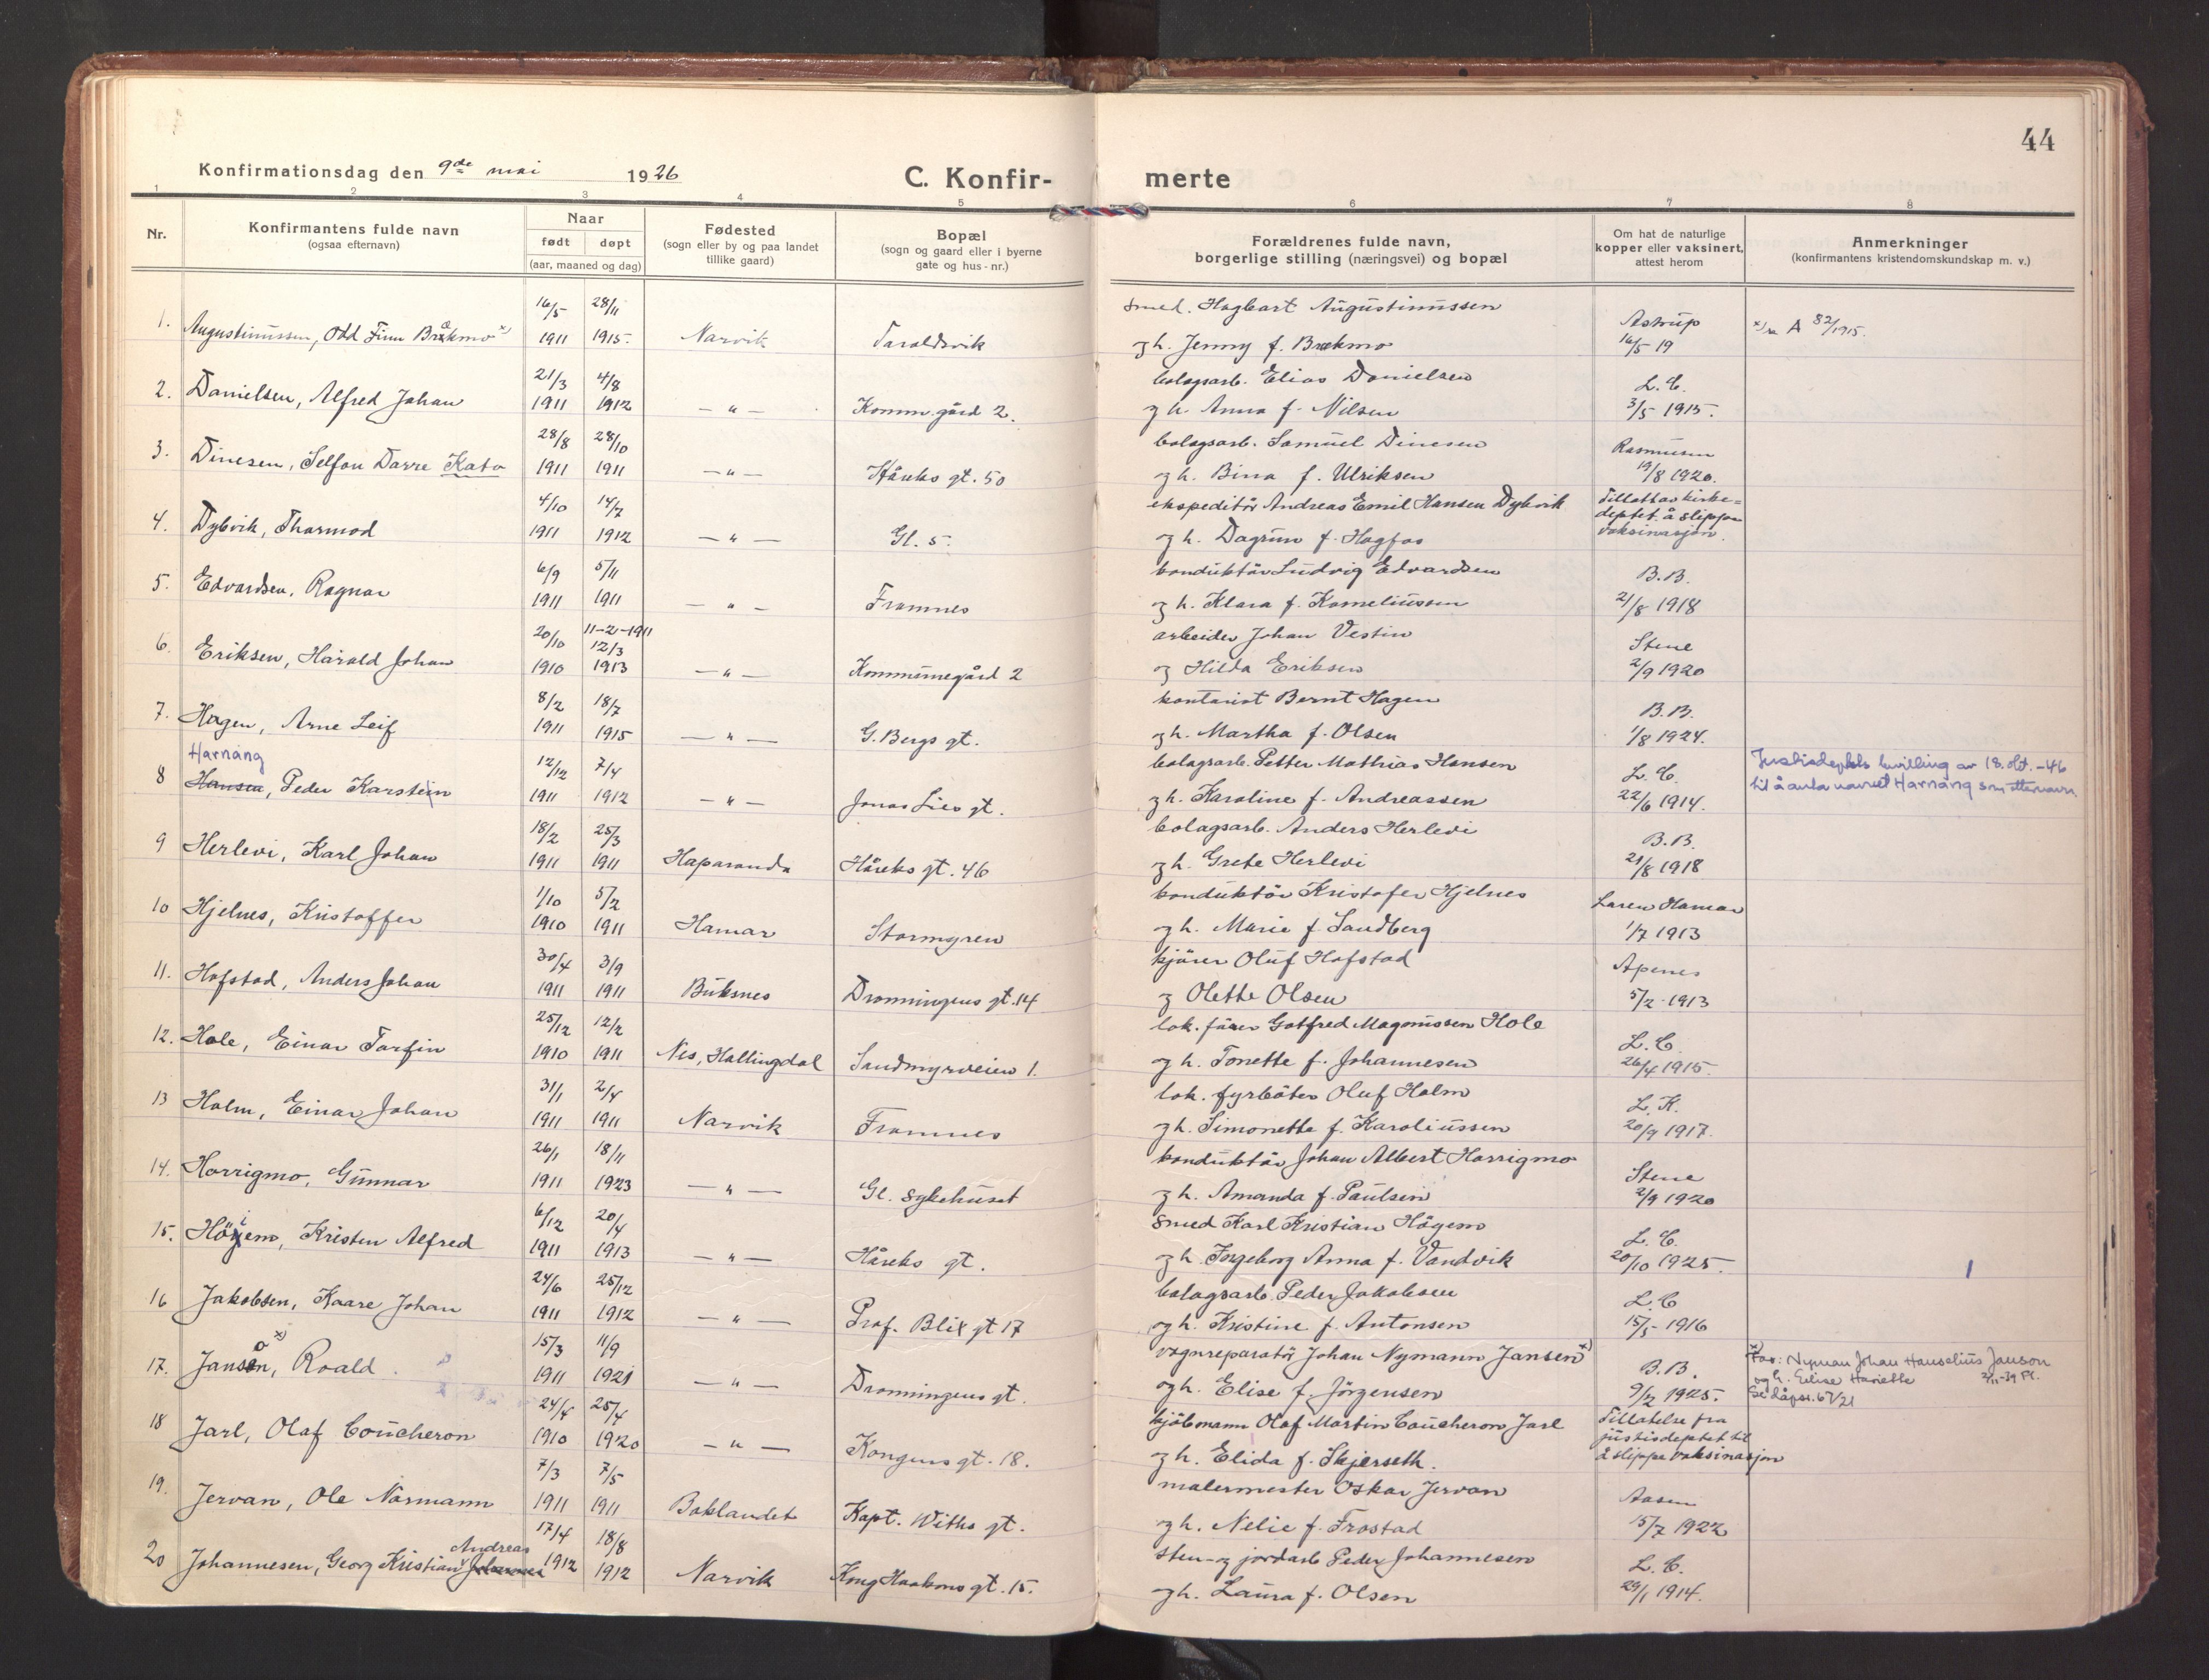 44
Konfirmationsdag den 9de mai 1926
C. Konfir-
merte
1 2 3 4 5 6 7 8
Nr.
Konfirmantens fulde navn
(ogsaa efternavn)
Naar
født døpt
(aar, maaned og dag)
Fødested
(sogn eller by og paa landet
tillike gaard)
Bopæl
(sogn og gaard eller i byerne
gate og hus-nr.)
Forældrenes fulde navn,
borgerlige stilling (næringsvei) og bopæl
Om hat de naturlige
kopper eller vaksinert,
attest herom
Anmerkninger
(konfirmantens kristendomskundskap m. v.)
16/5 28/11 smed. Hagbart Augustinussen
1. Augustinussen, Odd Finn Brækmo x) 1911 1915 Narvik Taraldsvik og h. Jenny f. Brækmo Astrup 16/5 19 A 82/1915.
21/3 4/8 bolagsarb. Elias Danielsen L. C.
2. Danielsen, Alfred Johan 1911 1912 — " — Komm.gård 2. og h. Anna f. Nilsen 3/5 1915.
28/8 28/10 bolagsarb. Samuel Dinesen Rasmussen
3. Dinesen, Selfon Darre Kato 1911 1911 — " — Håreks gt. 50 og h. Bina f. Ulriksen 19/8 1920.
4/10 14/7 ekspeditör Andreas Emil Hansen Dybvik Tillatt av kirke=
deptet å slippe
4. Dybvik, Tharmod 1911 1912 — " — Gl. 5. og h. Dagrun f. Hagfos vaksinasjon.
6/9 5/11 konduktör Ludvig Edvardsen B. B.
5. Edvardsen, Ragnar 1911 1911 — " — Framnes og h. Klara f. Korneliussen 21/8 1918
20/10 11-2-1911 12/3 arbeider Johan Vestin Stene
6. Eriksen, Harald Johan 1910 1913 — " — Kommunegård 2 og Hilda Eriksen 2/9 1920
8/2 18/7 kontorist Bernt Hagen B. B.
7. Hagen, Arne Leif 1911 1915 — " — G. Bergs gt. og h. Martha f. Olsen 1/8 1924.
Harnang 12/12 7/4 bolagsarb. Petter Mathias Hansen L. C. Justisdeptets bevilling av 18. okt. -46
8 Hansen, Peder Karstein 1911 1912 — " — Jonas Lies gt. og h. Karoline f. Andreassen 22/6 1914. til å anta navnet Harnang som etternavn.
18/2 25/3 bolagsarb. Anders Herlevi B. B.
9 Herlevi, Karl Johan 1911 1911 Haparanda Håreks gt. 46 og h. Grete Herlevi 21/8 1918
1/10 5/2 konduktör Kristofer Hjelnes Laren Hamar
10 Hjelnes, Kristoffer 1910 1911 Hamar Stormyren og h. Marie f. Sandberg 1/7 1913
30/4 3/9 kjörer Oluf Hofstad Apenes
11. Hofstad, Anders Johan 1911 1911 Buksnes Dronningens gt. 14 og Olette Olsen 5/2 1913
25/12 12/2 lok. förer Gotfred Magnussen Hole L. C.
12. Hole, Einar Torfin 1910 1911 Nes, Hallingdal Sandmyrveien 1. og h. Tonette f. Johannesen 26/4 1915.
31/1 2/4 lok. fyrböter Oluf Holm L. K.
13 Holm, Einar Johan 1911 1911 Narvik Framnes og h. Simonette f. Karoliussen 20/9 1917.
26/1 18/11 konduktör Johan Albert Horrigmo Stene
14. Horrigmo, Gunnar 1911 1923 — " — Gl. sykehuset og h. Amanda f. Paulsen 2/9 1920
6/12 20/4 smed Karl Kristian Högemo L. C.
15. Höiemo, Kristen Alfred 1911 1913 — " — Håreks gt. og h. Ingeborg Anna f. Vandvik 20/10 1925.
24/6 25/12 bolagsarb. Peder Jakobsen L. C
16 Jakobsen, Kaare Johan 1911 1912 — " — Prof. Blix gt 17 og h. Kristine f. Antonsen 15/5 1916
15/3 11/9 vognreparatör Johan Nymann Jansen x) B. B. x) Far: Nyman Johan Hanselius Janson
17. Janson x), Roald 1911 1921 — " — Dronningens gt. og h. Elise f. Jörgensen 9/2 1925. og h. Elise Hariette 2/11-39 Pl.
Se dåpsr. 67/21
24/4 25/4 kjöbmann Olaf Martin Coucheron Jarl Tillatelse fra
justisdeptet til
18 Jarl, Olaf Coucheron 1910 1920 — " — Kongens gt. 18. og h. Elida f. Skjerseth. å slippe vaksinasjon
7/3 7/5 malermester Oskar Jervan Aasen
19. Jervan, Ole Normann 1911 1911 Baklandet Kapt. Withs gt. og h. Nelie f. Frostad 15/7 1922
Andreas 17/4 18/8 Sten- og jordarb Peder Johannesen L. C.
20 Johannesen, Georg Kristian 1912 1912 Narvik Kong Haakons gt. 15. og h. Laura f. Olsen 29/1 1914.